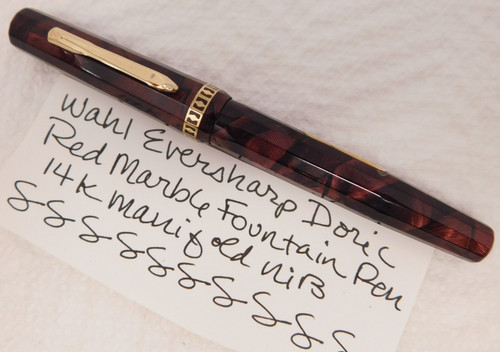 Wahl Eversharp Doric
Red Marble Fountain Pen
14K Manifold nib